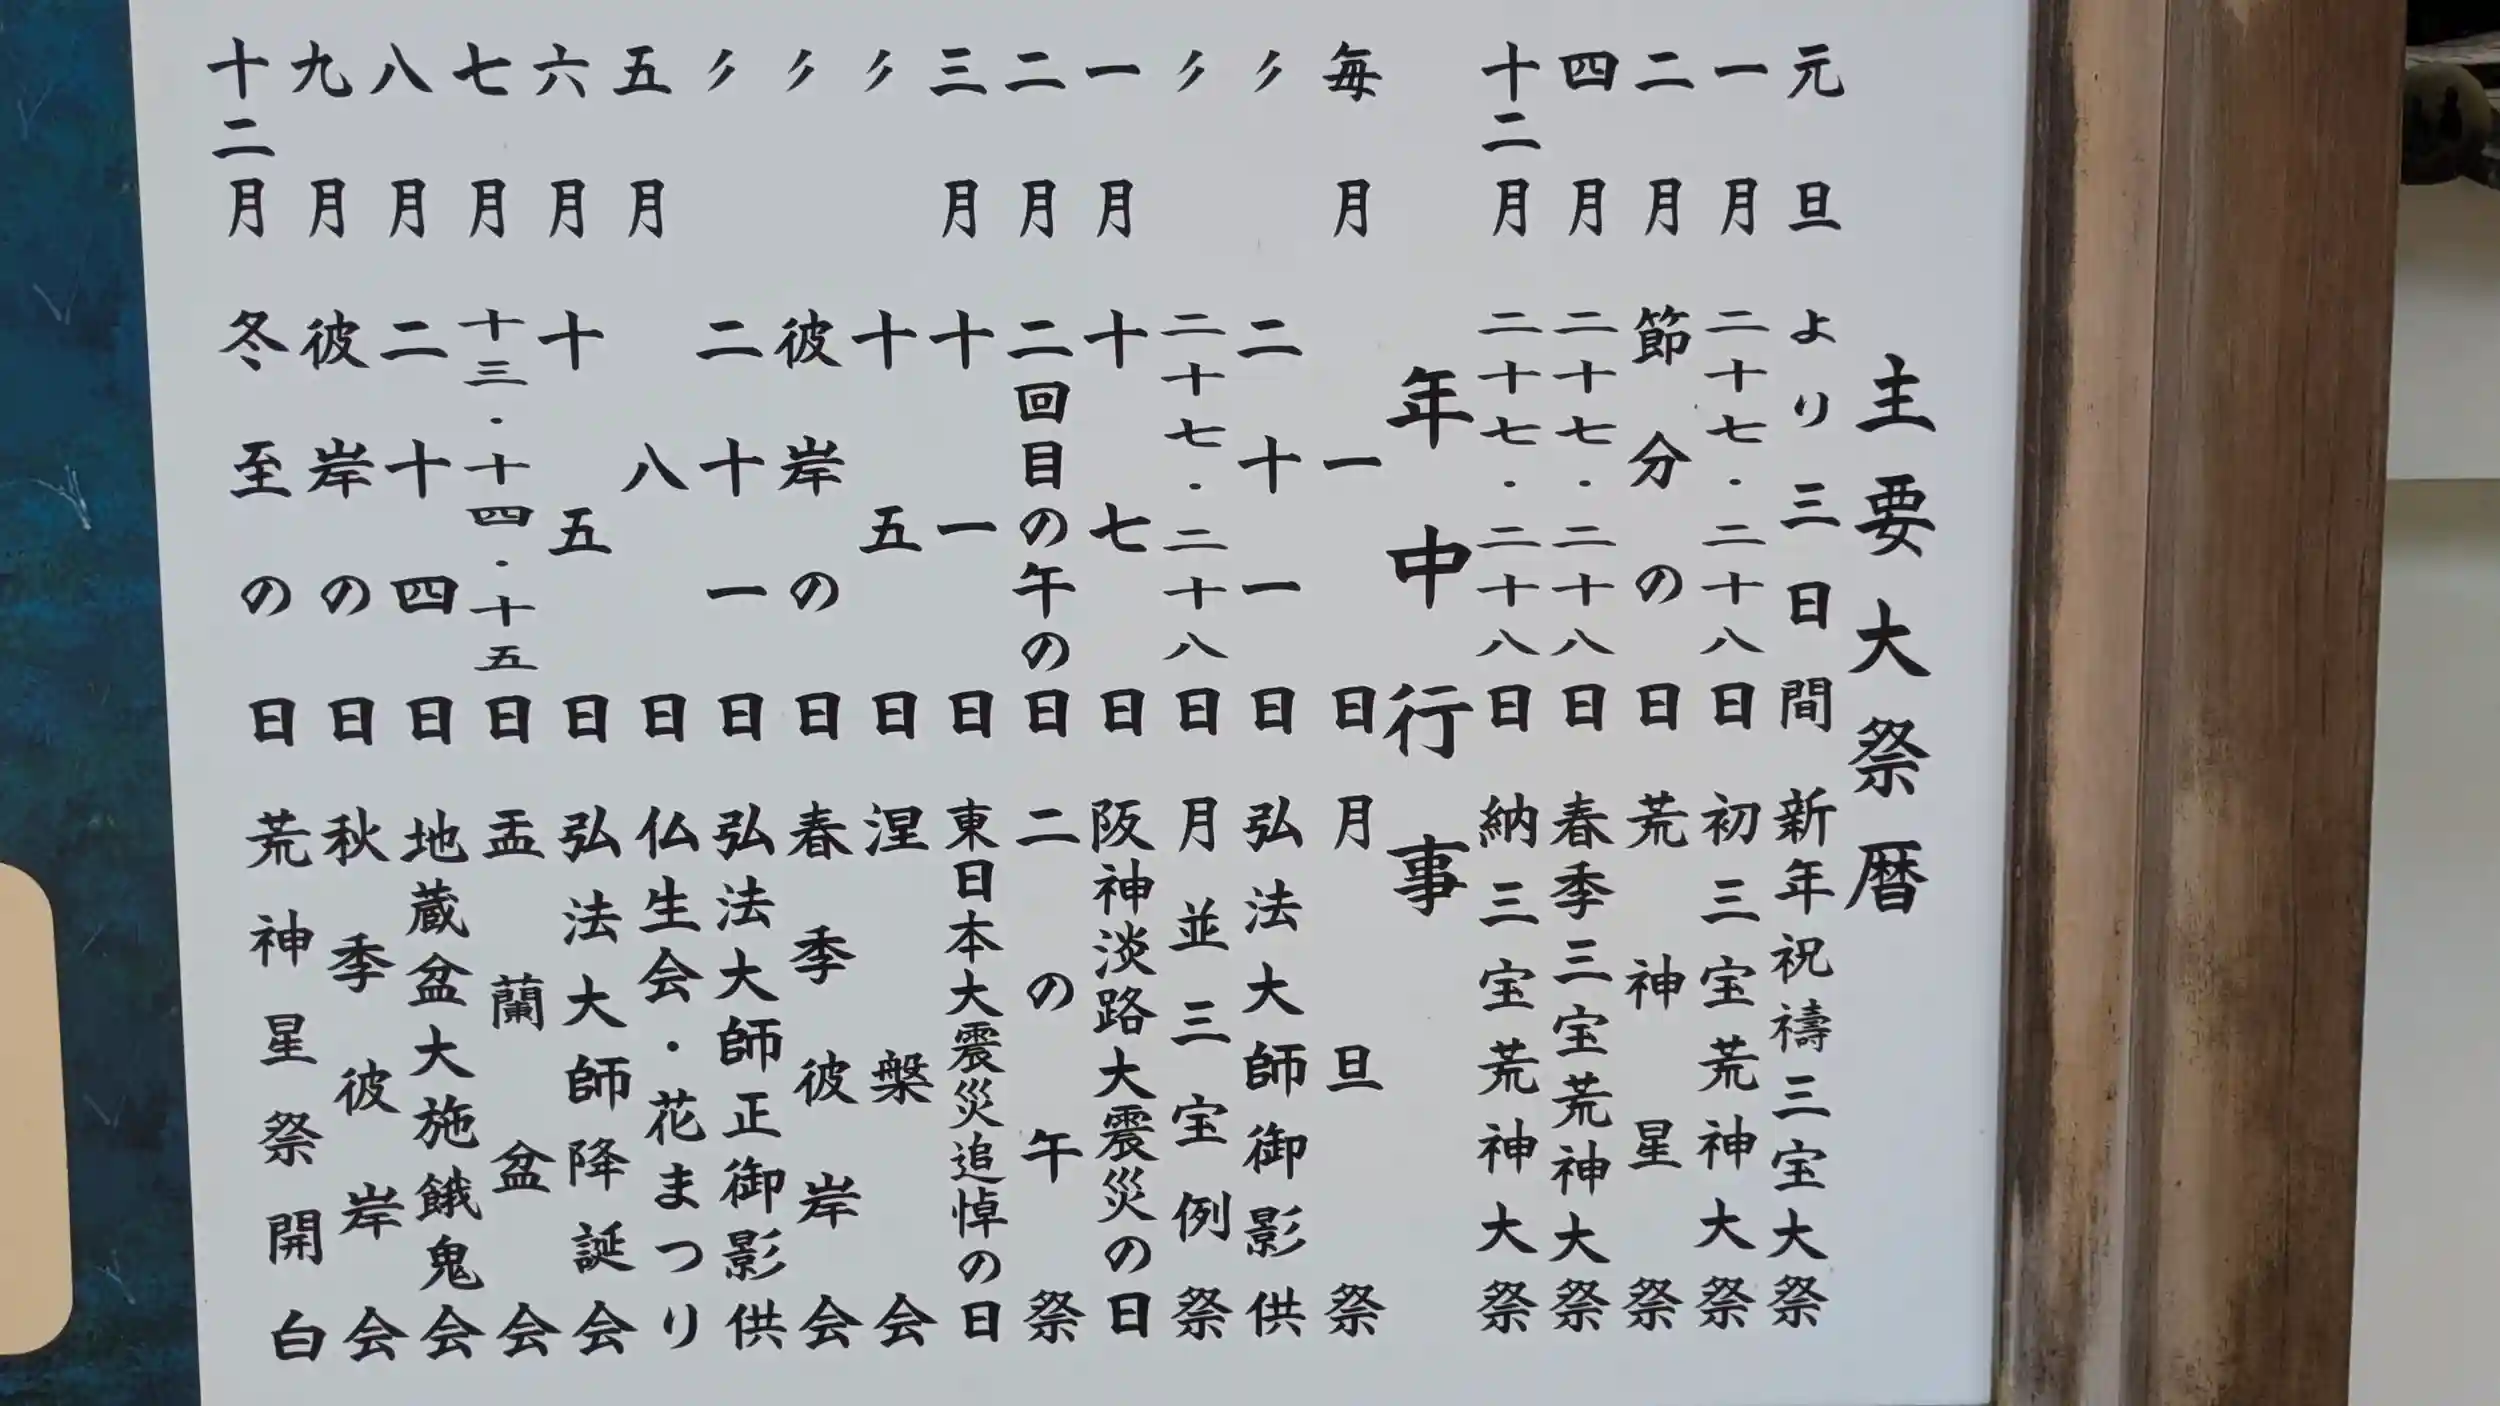 主要大祭暦
元旦より三日間 新年祝禱三宝大祭
一月 二十七・二十八日 初三宝荒神大祭
二月 節分の日 荒神星祭
四月 二十七・二十八日 春季三宝荒神大祭
十二月 二十七・二十八日 納三宝荒神大祭
年中行事
毎月 一日 月旦祭
〃 二十一日 弘法大師御影供
〃 二十七・二十八日 月並三宝例祭
一月 十七日 阪神淡路大震災の日
二月 二回目の午の日 二の午祭
三月 十一日 東日本大震災追悼の日
〃 十五日 涅槃会
〃 彼岸の日 春季彼岸会
〃 二十一日 弘法大師正御影供
五月 八日 仏生会・花まつり
六月 十五日 弘法大師降誕会
七月 十三・十四・十五日 盂蘭盆会
八月 二十四日 地蔵盆大施餓鬼会
九月 彼岸の日 秋季彼岸会
十二月 冬至の日 荒神星祭開白